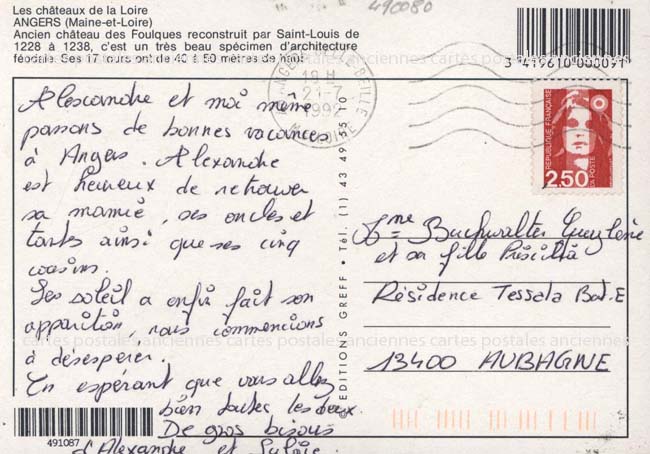 Les châteaux de la Loire
ANGERS (Maine-et-Loire)
Ancien château des Foulques reconstruit par Saint-Louis de
1228 à 1238, c'est un très beau spécimen d'architecture
féodale. Ses 17 tours ont de 40 à 50 mètres de haut.
490080
3 419610 000091
19 H
21-7
1992
REPUBLIQUE FRANÇAISE
LA POSTE
2,50
Alexandre et moi même
passons de bonnes vacances
à Angers. Alexandre
est heureux de retrouver
sa mamie, ses oncles et
tantes ainsi que ses cinq
cousins.
Le soleil a enfin fait son
apparition, nous commencions
à désespérer.
En espérant que vous allez
bien toutes les deux.
De gros bisous
d'Alexandre et Sylvie
© EDITIONS GREFF • Tél. (1) 43 49 55 10
Mme Buchwalter
et sa fille Priscilla
Résidence Tessela Bat. E
13400 AUBAGNE
cartes postales anciennes cartes postales anciennes cartes postales anciennes
cartes postales anciennes cartes postales anciennes cartes postales anciennes
491087